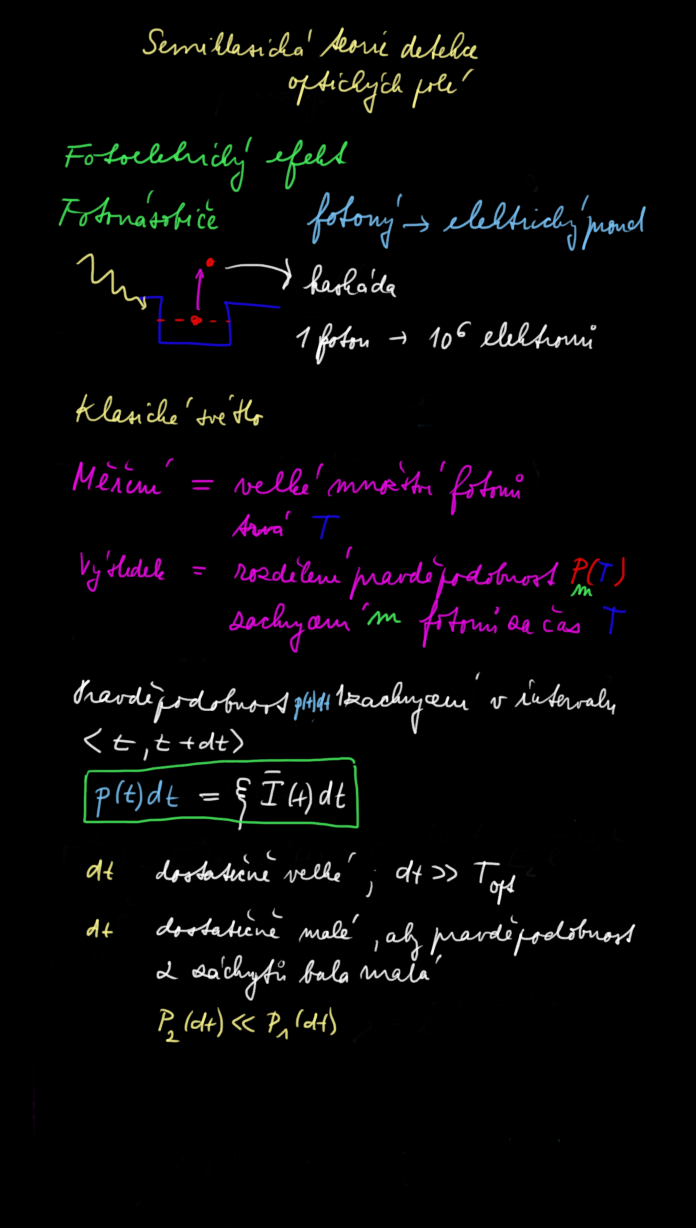 Semiklasická teorie detekce
optických polí
Fotoelektrický efekt
Fotonásobiče fotony → elektrický proud
kaskáda
1 foton → 10⁶ elektronů
Klasické světlo
Měření = velké množství fotonů
trvá T
Výsledek = rozdělení pravděpodobnost Pₘ(T)
zachycení m fotonů za čas T
Pravděpodobnost p(t)dt 1 zachycení v intervalu
<t, t+dt>
p(t)dt = ξ Ī(t)dt
dt dostatečně velké, dt >> T_opt
dt dostatečně malé, aby pravděpodobnost
2 záchytů bala malá
P₂(dt) << P₁(dt)